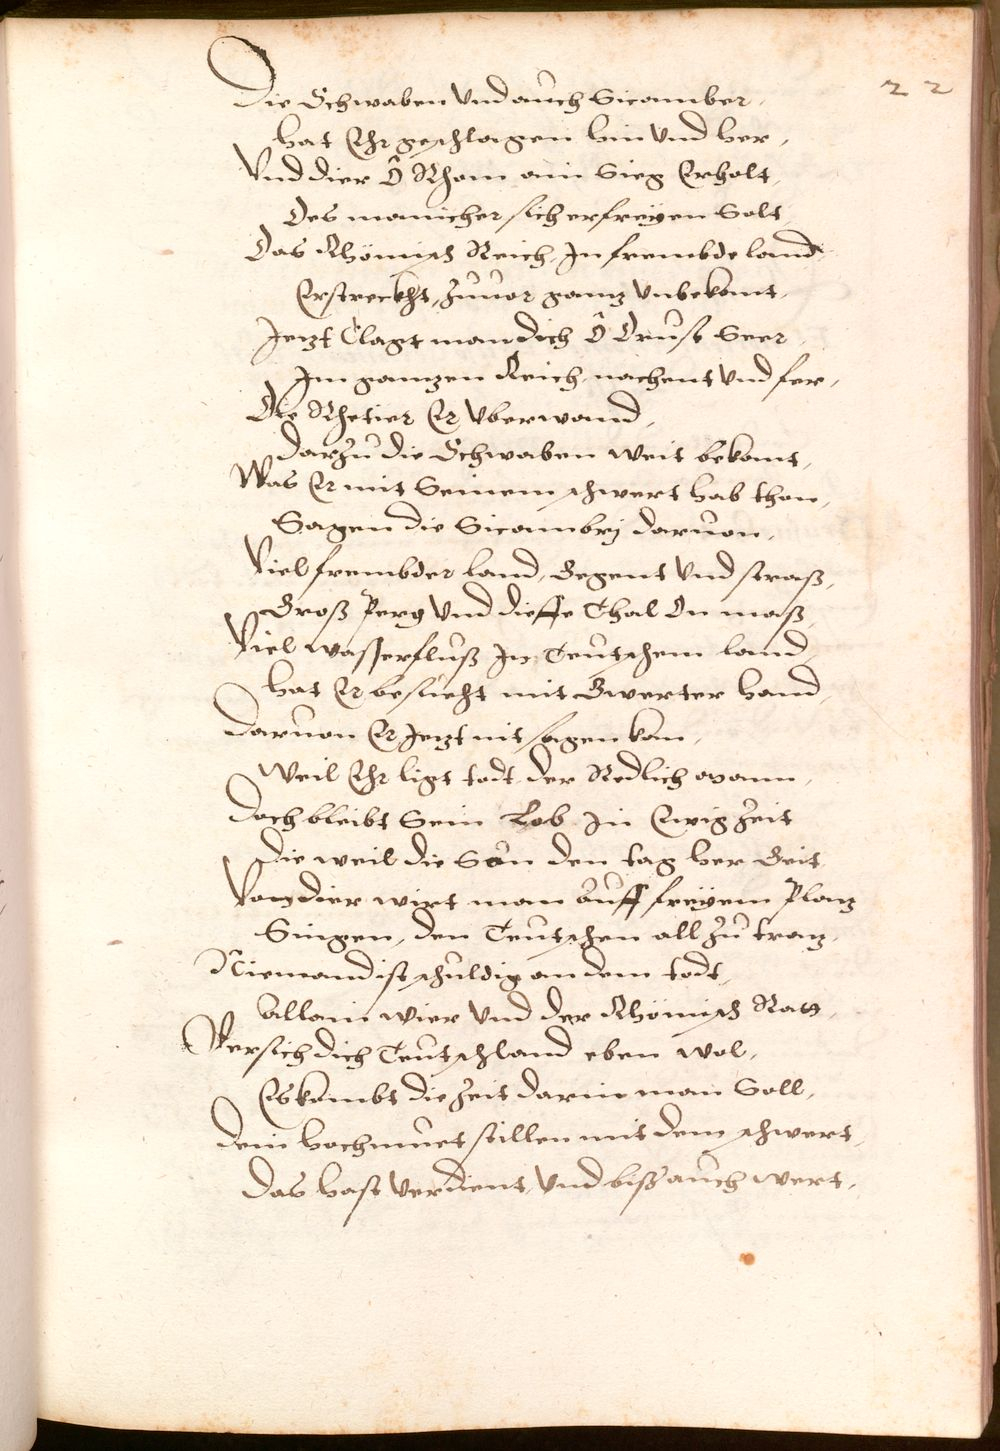 22
Die Schwaben Vnd auch Sicamber,
hat Ehr geschlagen hin Vnd her,
Vnd dier Ô Rhom ain Sieg Erhalt,
Des manicher sich erfreyen Solt,
Das Rhömisch Reich, In frembde land
Erstreckht, Zuuor gantz Vnbekant,
Jetzt Clagt man dich Ô Drusi Seer,
Im gantzen Reich, nachent Vnd fer,
Die Rhetier Er Vberwand,
darzu die Schwaben weit bekant,
Was Er mit Seinem schwert hab than,
Sagen die Sicambrj daruon,
Viel frembder land, Gegent Vnd strass,
Gross Perg Vnd dieffe Thal On mass,
Viel wasserfluss In Teutschem land,
hat Er besucht mit Gwerter hand,
daruon Er Jetzt nit sagen kan,
Weil Ehr ligt todt der Redlich Mann,
doch bleibt Sein Lob In Ewig Zeit
die weil die Son den tag her Geit
Von dier wirt man auff freyem Platz
Singen, den Teutschen all zu tratz,
Niemand ist schuldig an dem todt,
Allain wier Vnd der Rhömisch Ratt,
Versich dich Teutschland eben wol,
Es kombt die Zeit darin man Soll,
dein hochmuet stillen mit dem schwert,
das hast Verdient, Vnd biss auch wert,